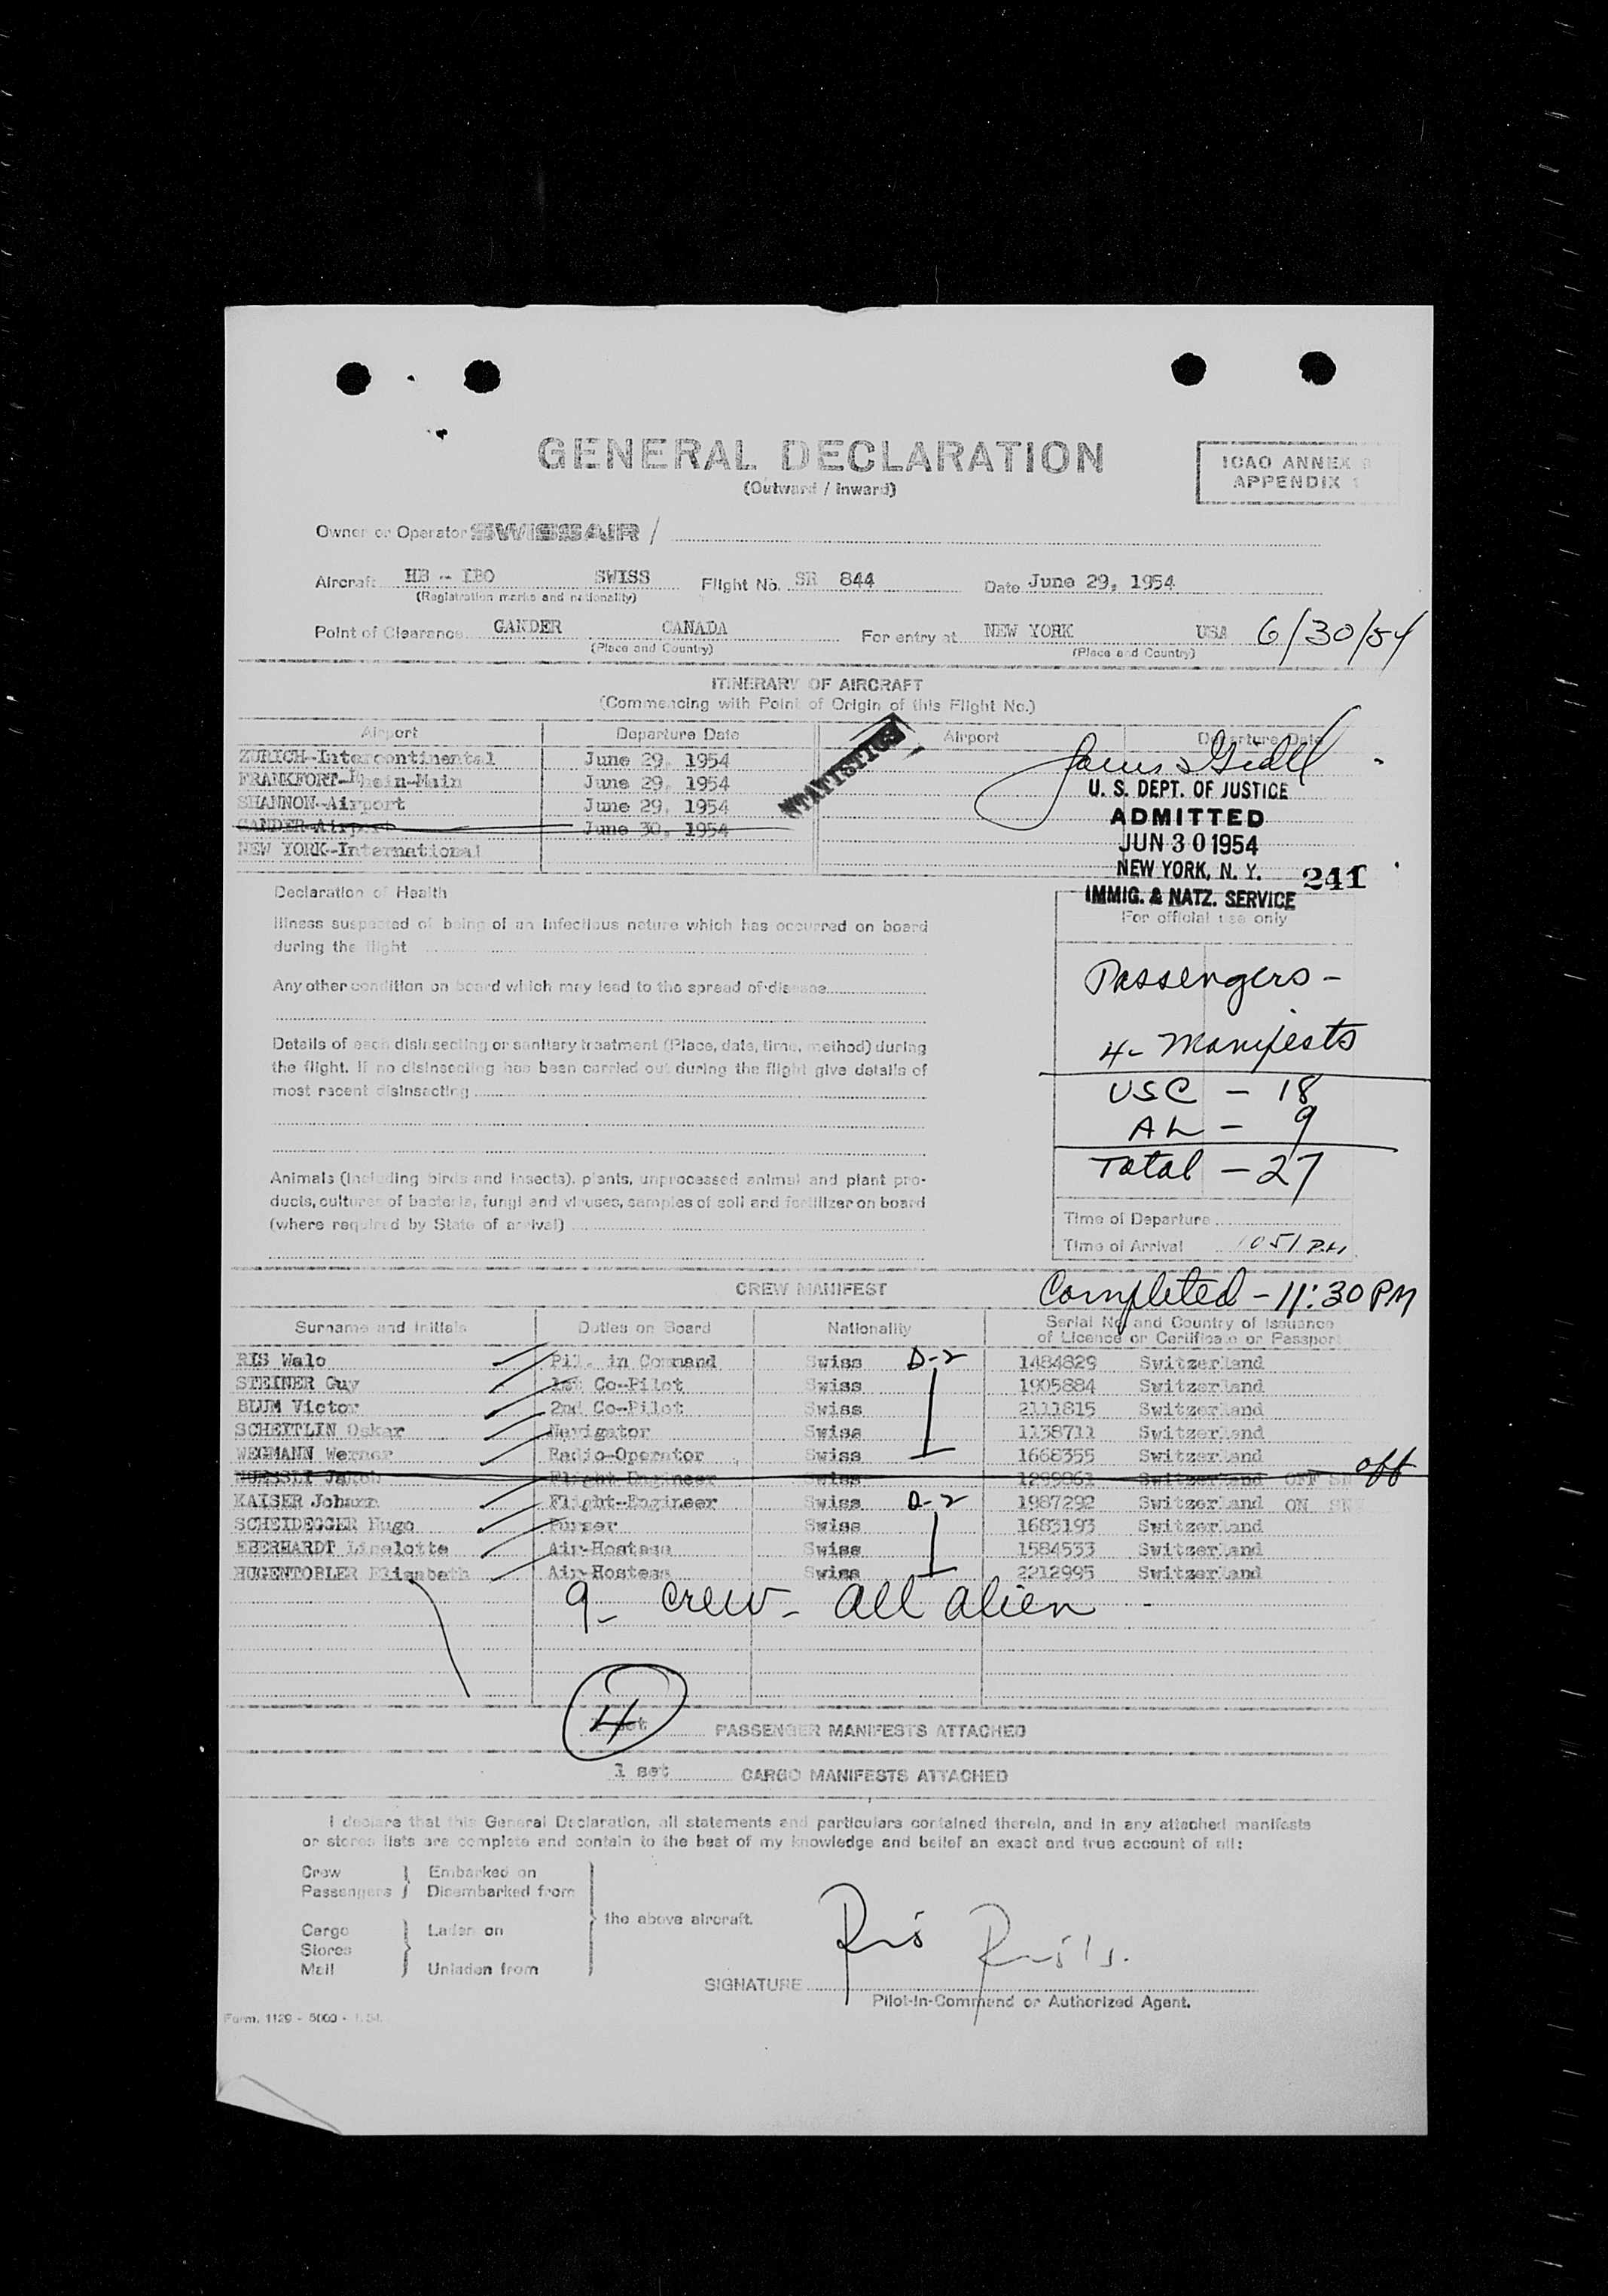 GENERAL DECLARATION
(Outward / Inward)
ICAO ANNEX
APPENDIX
Owner or Operator SWISSAIR /
Aircraft HB - IBO SWISS Flight No. SR 844 Date June 29, 1954
(Registration marks and nationality)
Point of Clearance GANDER CANADA For entry at NEW YORK USA 6/30/54
(Place and Country) (Place and Country)
ITINERARY OF AIRCRAFT
(Commencing with Point of Origin of this Flight No.)
Airport Departure Date Airport Departure Date
ZURICH-Intercontinental June 29, 1954
FRANKFORT-Rhein-Main June 29, 1954
SHANNON-Airport June 29, 1954
GANDER-Airport June 30, 1954
NEW YORK-International
STATISTICS
U. S. DEPT. OF JUSTICE
ADMITTED
JUN 30 1954
NEW YORK, N. Y. 241
IMMIG. & NATZ. SERVICE
For official use only
Declaration of Health
Illness suspected of being of an infectious nature which has occurred on board
during the flight
Any other condition on board which may lead to the spread of disease
Details of each disinsecting or sanitary treatment (Place, date, time, method) during
the flight. If no disinsecting has been carried out during the flight give details of
most recent disinsecting
Animals (including birds and insects), plants, unprocessed animal and plant pro-
ducts, cultures of bacteria, fungi and viruses, samples of soil and fertilizer on board
(where required by State of arrival)
Passengers -
4 - Manifests
USC - 18
AL - 9
Total - 27
Time of Departure
Time of Arrival 1051 PM
CREW MANIFEST
Completed - 11:30 PM
Surname and Initials Duties on Board Nationality Serial No. and Country of Issuance
of Licence or Certificate or Passport
RIS Walo Pil. in Command Swiss D-2 1484829 Switzerland
STEINER Guy 1st Co-Pilot Swiss 1905884 Switzerland
BLUM Victor 2nd Co-Pilot Swiss 2111815 Switzerland
SCHEITLIN Oskar Navigator Swiss 1138711 Switzerland
WEGMANN Werner Radio-Operator Swiss 1668355 Switzerland
Jakob Flight Engineer Swiss 1299861 Switzerland OFF off
KAISER Johann Flight-Engineer Swiss D-2 1987292 Switzerland ON
SCHEIDEGGER Hugo Purser Swiss 1683193 Switzerland
EBERHARDT Liselotte Air-Hostess Swiss 1584533 Switzerland
HUGENTOBLER Elisabeth Air-Hostess Swiss 2212995 Switzerland
9 - crew - all alien
4 1 set PASSENGER MANIFESTS ATTACHED
1 set CARGO MANIFESTS ATTACHED
I declare that this General Declaration, all statements and particulars contained therein, and in any attached manifests
or stores lists are complete and contain to the best of my knowledge and belief an exact and true account of all:
Crew Embarked on
Passengers Disembarked from
the above aircraft.
Cargo Laden on
Stores
Mail Unladen from
Ris
SIGNATURE
Pilot-in-Command or Authorized Agent.
Form. 1129 - 5000 -